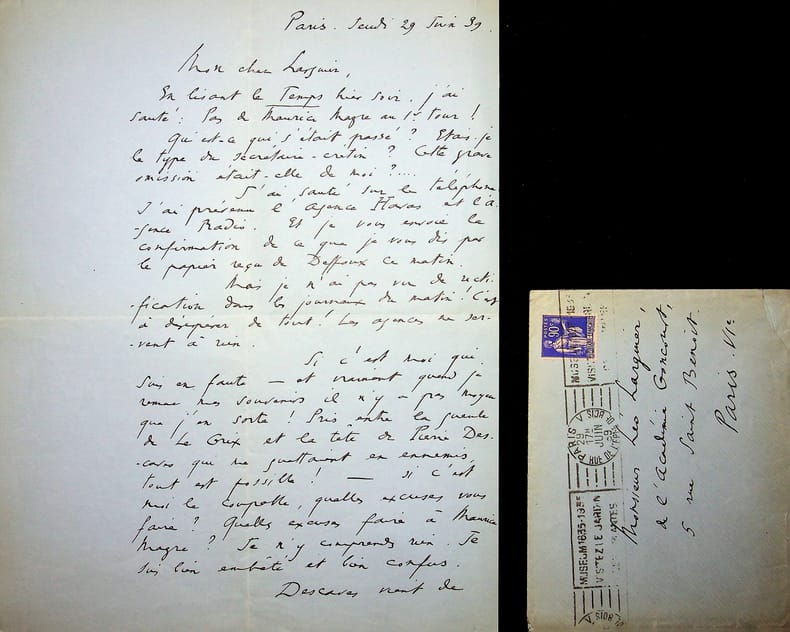 Paris. Jeudi 29 Juin 39.
Mon cher Larguier,
En lisant le Temps hier soir. j'ai
sauté : Pas de Maurice Magre au 1er tour !
Qui est-ce qui s'était passé ? Etais-je
le type du secrétaire-crétin ? Cette grave
omission était-elle de moi ?....
J'ai sauté sur le téléphone
J'ai prévenu l'Agence Havas et l'A-
-gence Radio. Et je vous envoie la
confirmation de ce que je vous dis par
le papier reçu de Deffoux ce matin.
Mais je n'ai pas vu de recti-
-fication dans les journaux du matin. C'est
à désespérer de tout ! Les agences ne ser-
-vent à rien.
Si c'est moi qui
suis en faute — et vraiment quand je
remue mes souvenirs il n'y a pas moyen
que j'en sorte ! Pris entre la gueule
de Le Grix et la tête de Pierre Des-
-caves qui me guettaient en ennemis,
tout est possible ! — si c'est
moi le coupable, quelles excuses vous
faire ? Quelles excuses faire à Maurice
Magre ? Je n'y comprends rien. Je
suis bien embêté et bien confus.
Descaves vient de
POSTES
90c
MUSEUM 1635-1935
VISITEZ LE JARDIN
PARIS
29
17H
JUIN
39
MUSEUM 1635-1935
VISITEZ LE JARDIN
Monsieur Leo Larguier,
de l'Académie Goncourt,
5 rue Saint Benoit
Paris. VIe